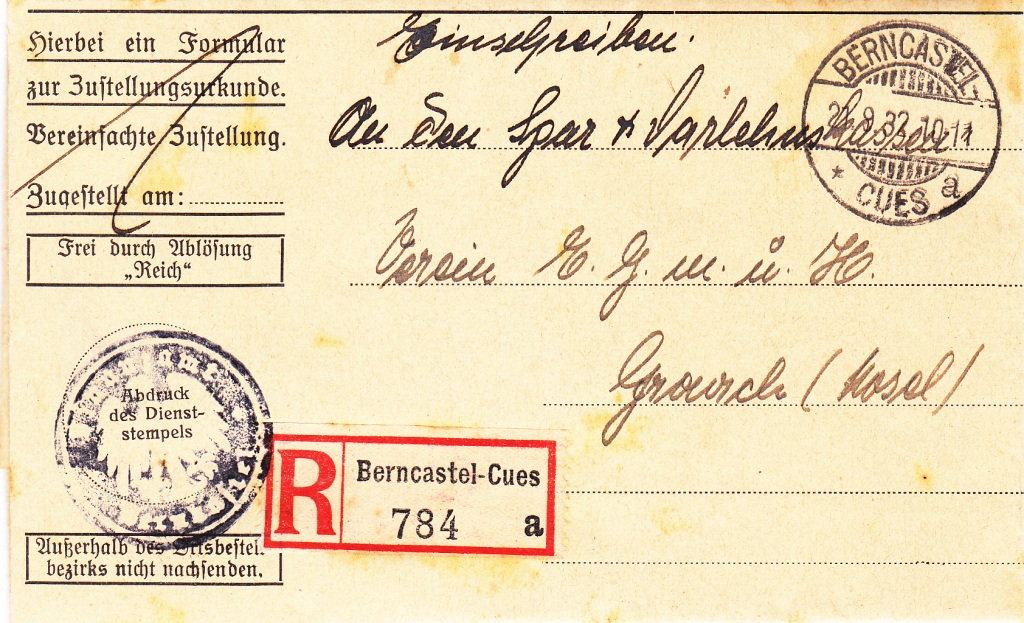 Hierbei ein Formular
zur Zustellungsurkunde.
Vereinfachte Zustellung.
Zugestellt am:
Frei durch Ablösung
„Reich“
Abdruck
des Dienst-
stempels
Außerhalb des Ortsbestell-
bezirks nicht nachsenden.
Einschreiben.
An den Spar & Darlehnskassen
Verein E. G. m. u. H.
(Mosel)
BERNCASTEL-
8.32.10-11
* CUES a
R Berncastel-Cues
784 a